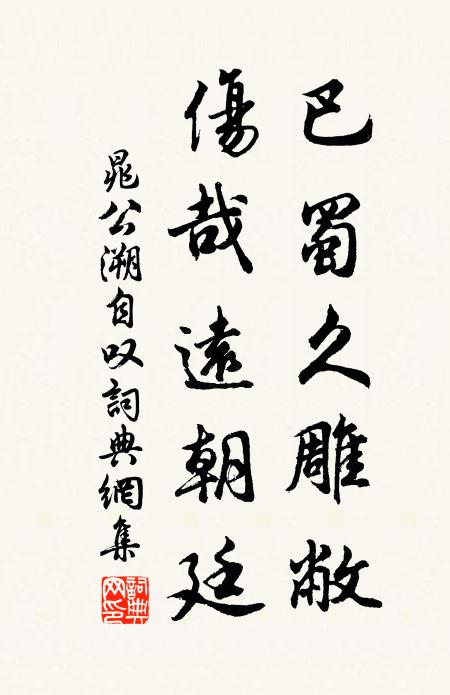 巴蜀久雕敝
傷哉遠朝廷
晁公溯自叹詞典網集
詞典網印